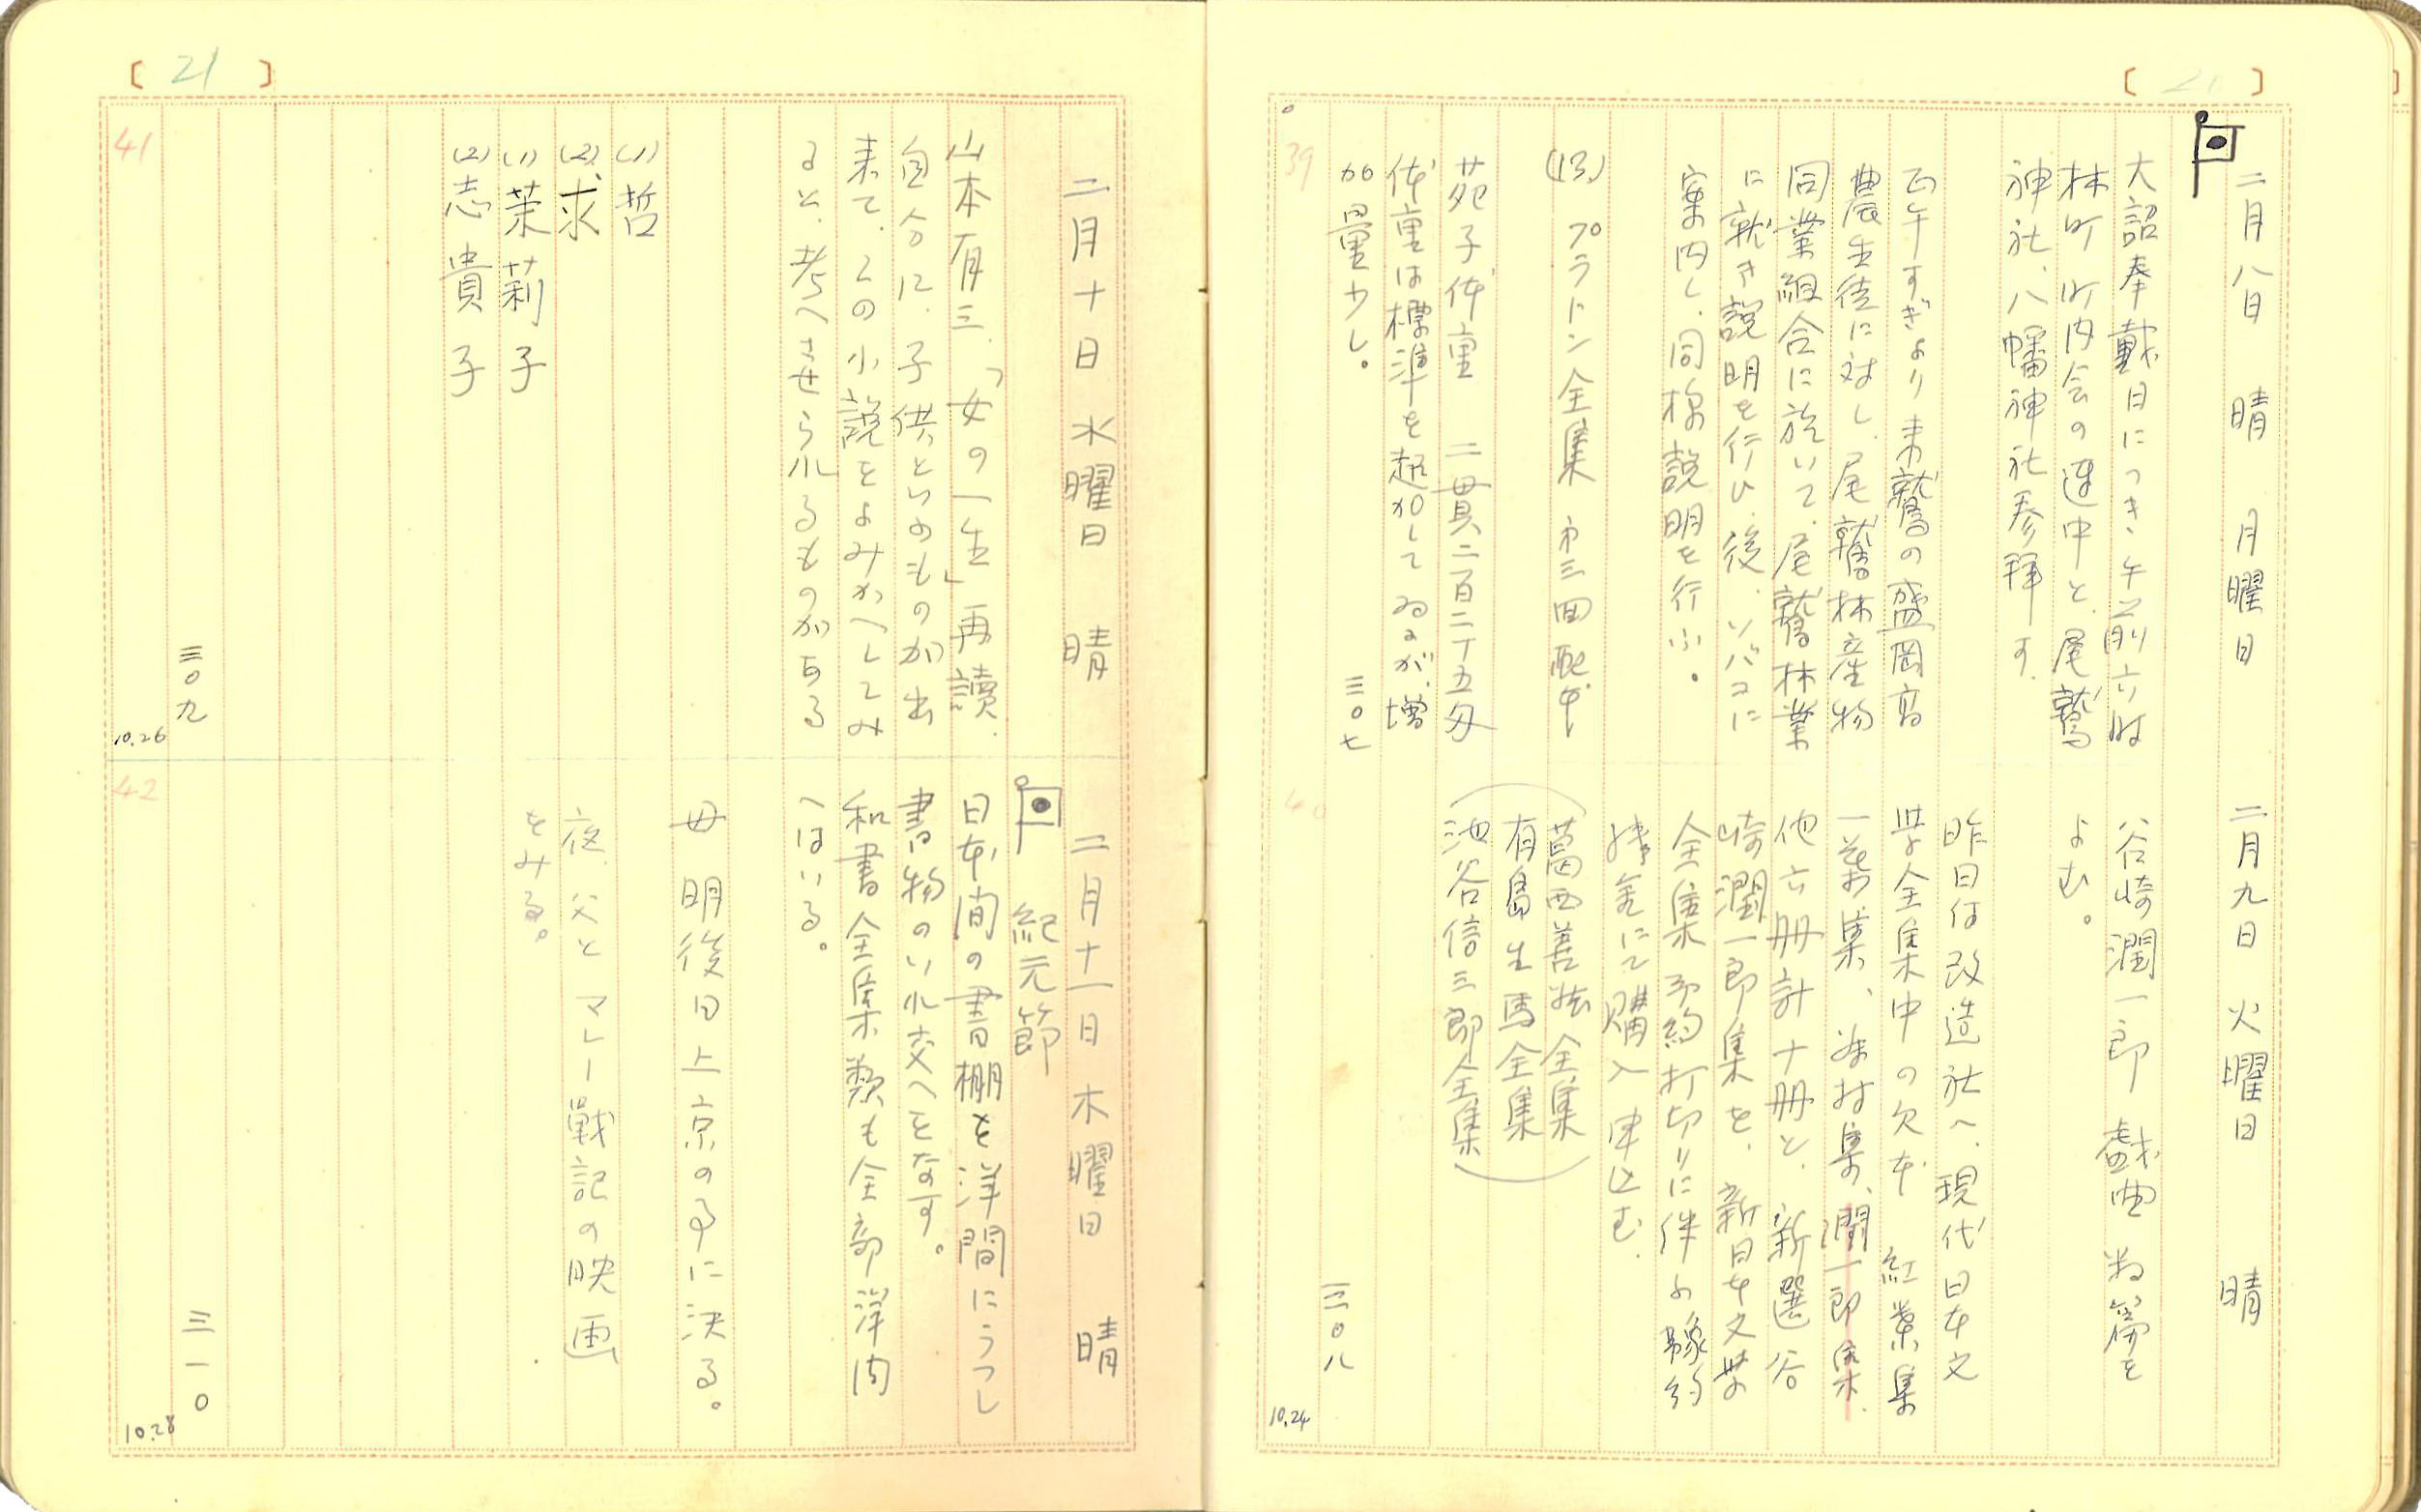 二月八日 晴 月曜日
大詔奉戴日につき、午前六時
林町町内会の連中と、尾鷲
神社、八幡神社参拝す。
正午すぎより来鷲の盛岡高
農生徒に対し、尾鷲林産物
同業組合に於いて、尾鷲林業
に就き説明を行ひ、後、ソバコに
案内し、同様説明を行ふ。
(13) プラトン全集 第三回配本
苑子体重 二貫二百二十五匁
体重は標準を超加してゐるが、増
加量少し。
三〇七
39
二月九日 火曜日 晴
谷崎潤一郎 戯曲 数篇を
よむ。
昨日付改造社へ、現代日本文
学全集中の欠本 紅葉集
一葉集、潤一郎集、
他六冊計十冊と、新選谷
崎潤一郎集を、新日本文学
全集予約打切りに伴ふ豫約
残金にて購入申込む。
(葛西善蔵全集
有島生馬全集
池谷信三郎全集)
三〇八
40
10.24
[ 21 ]
二月十日 水曜日 晴
山本有三、「女の一生」再讀、
自分に、子供といふものが出
来て、この小説をよみかへしてみ
ると、考へさせられるものがある
(1) 哲
(2) 求
(1) 茉莉子
(2) 志貴子
三〇九
41
10.26
二月十一日 木曜日 晴
紀元節
日本間の書棚を洋間にうつし
書物のいれ交へをなす。
和書全集類も全部洋間
へはいる。
母 明後日上京の事に決る。
夜、父と マレー戦記の映画
をみる。
三一〇
42
10.28